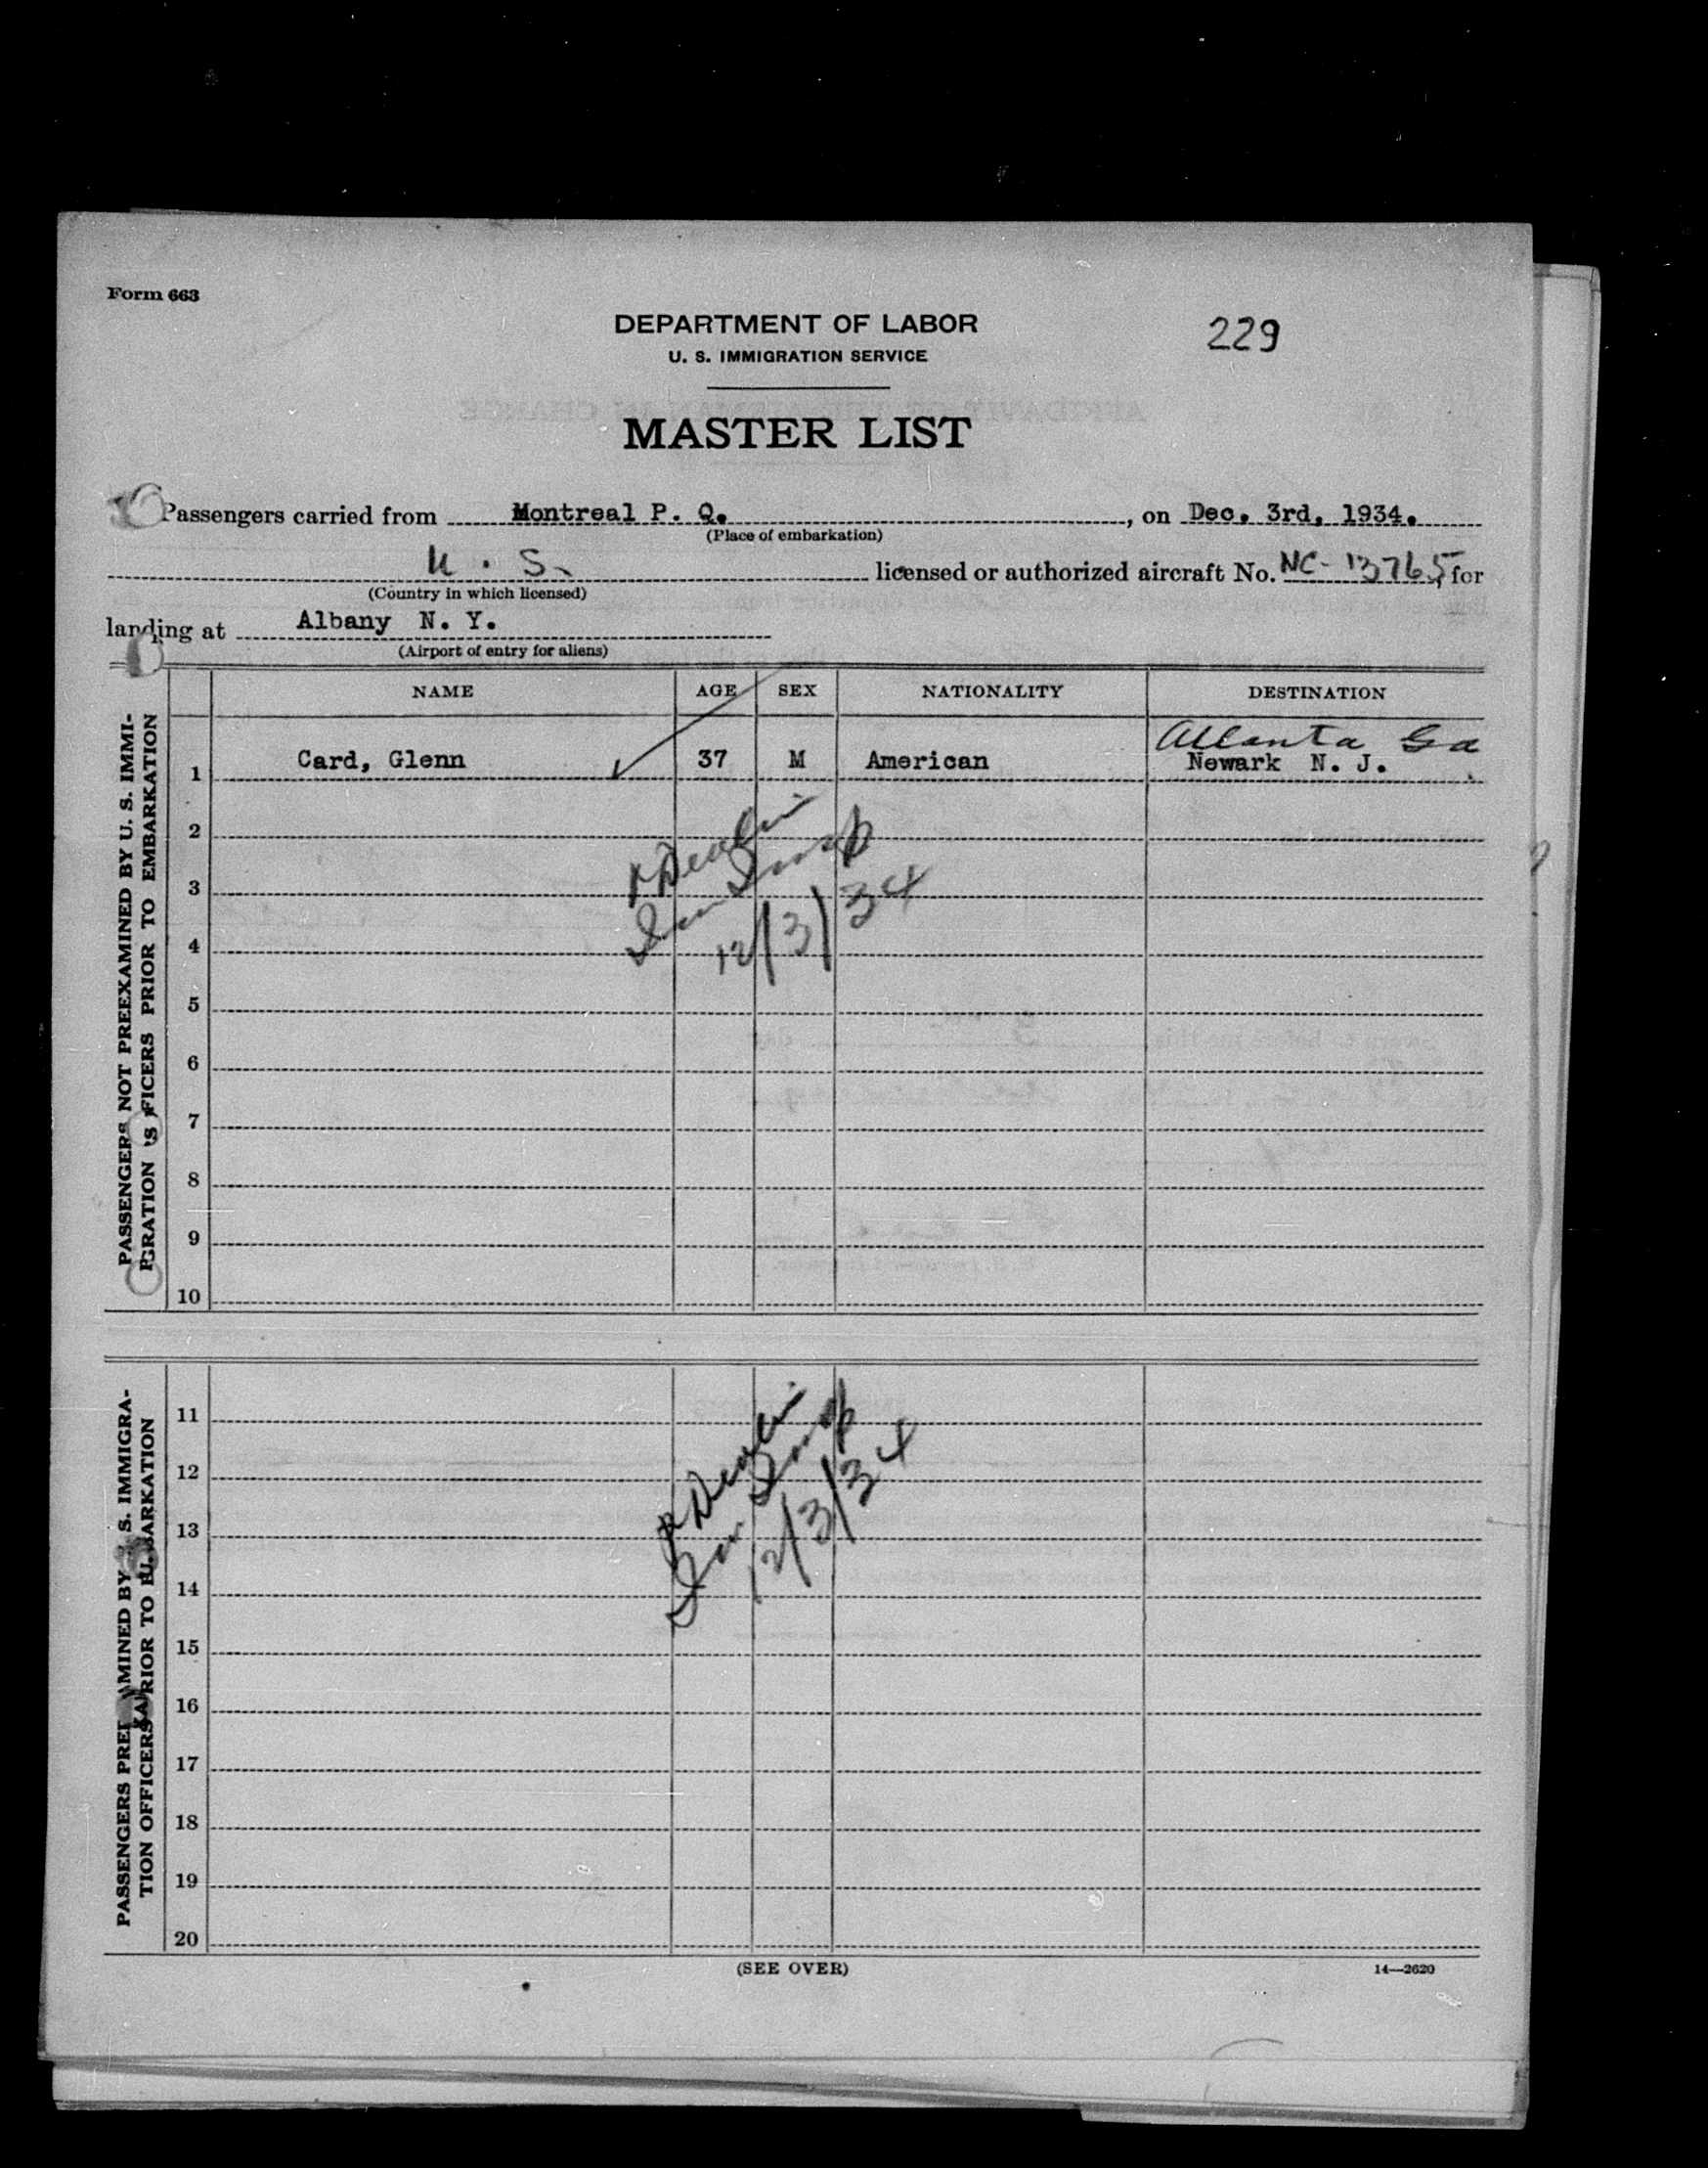 Form 663
DEPARTMENT OF LABOR
229
U. S. IMMIGRATION SERVICE
MASTER LIST
Passengers carried from Montreal P. Q. , on Dec. 3rd, 1934.
(Place of embarkation)
U. S. licensed or authorized aircraft No. NC-13765, for
(Country in which licensed)
landing at Albany N. Y.
(Airport of entry for aliens)
NAME AGE SEX NATIONALITY DESTINATION
Atlanta Ga
1 Card, Glenn 37 M American Newark N. J.
2
3
4
Imm Insp
12/3/34
5
6
7
8
9
10
PASSENGERS NOT PREEXAMINED BY U. S. IMMI-
GRATION FICERS PRIOR TO EMBARKATION
11
12
13
14
Imm Insp
12/3/34
15
16
17
18
19
20
PASSENGERS PREE AMINED BY U. S. IMMIGRA-
TION OFFICERS PRIOR TO E BARKATION
(SEE OVER)
14—2620